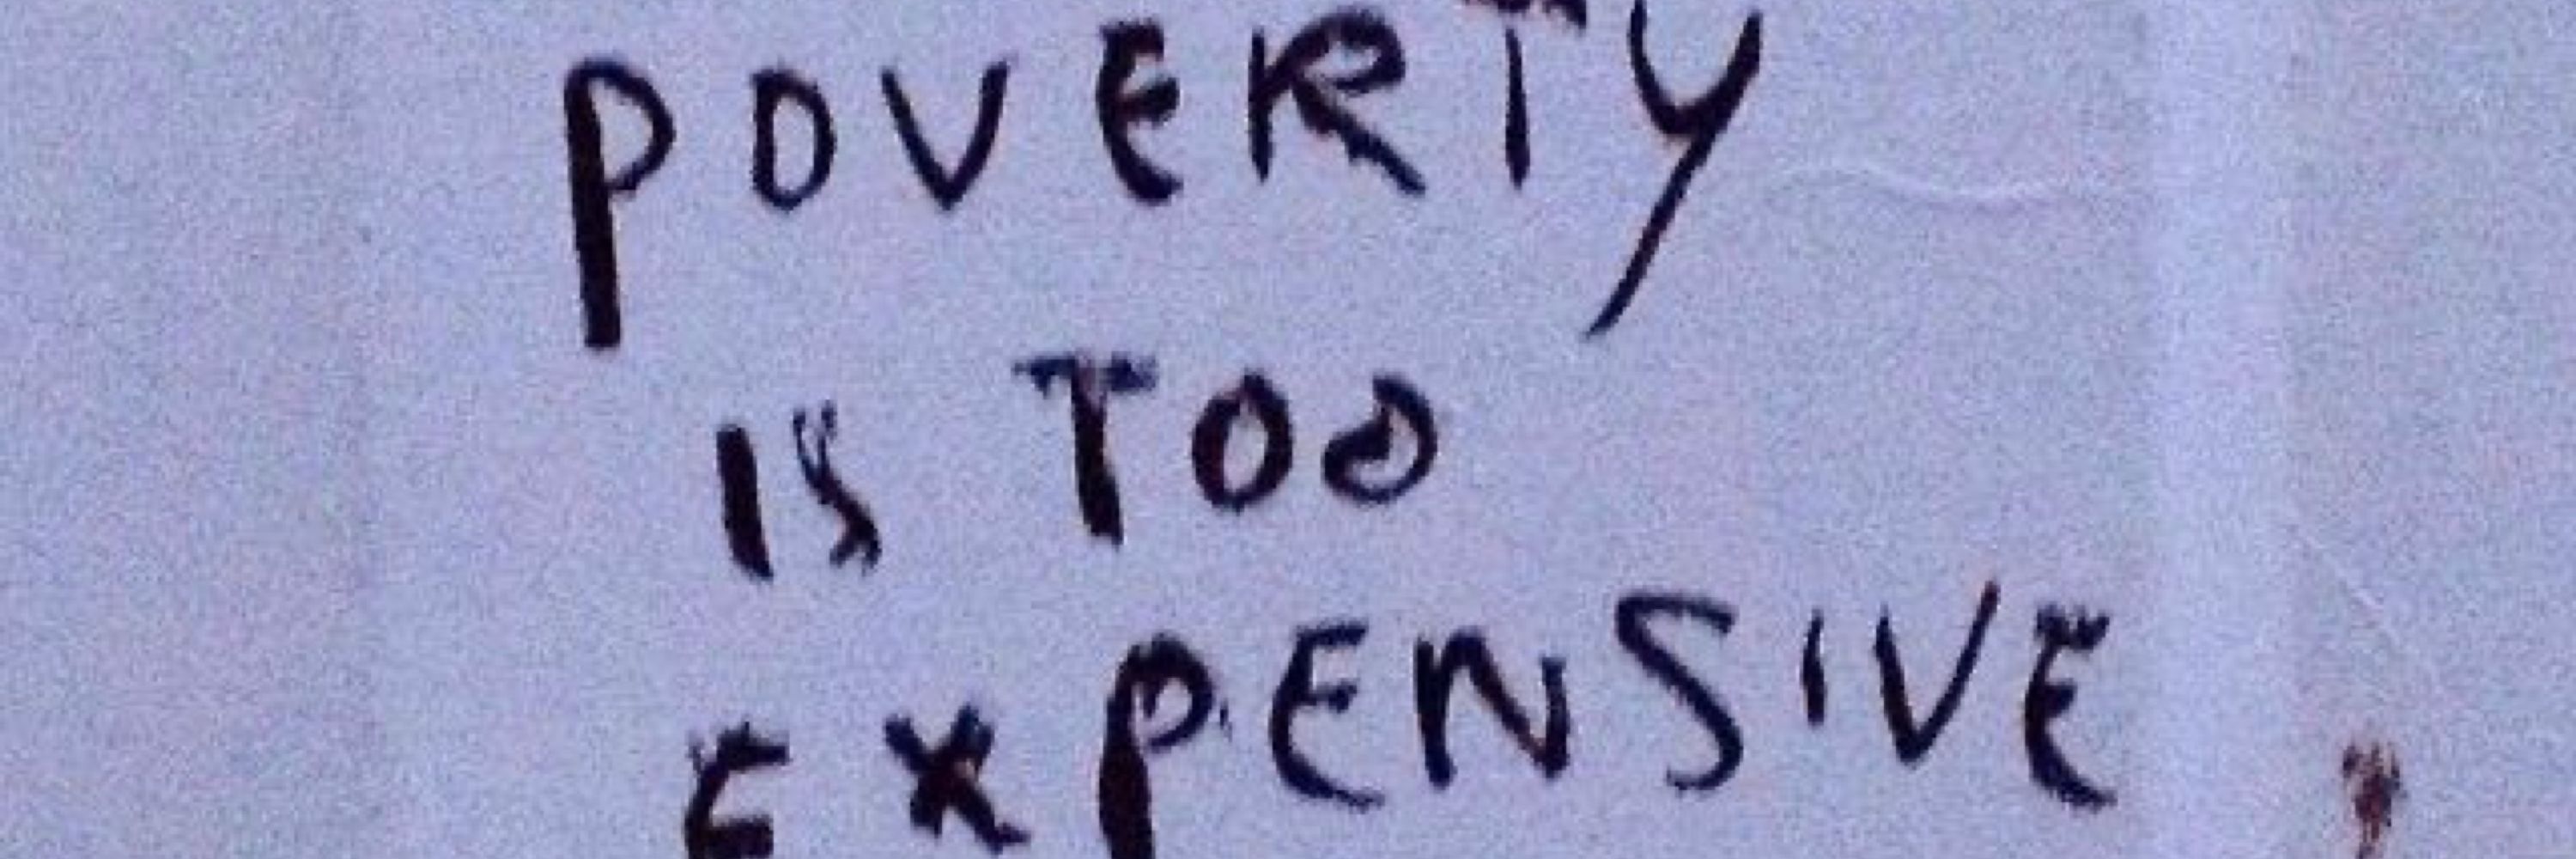 POVERTY
IS TOO
EXPENSIVE